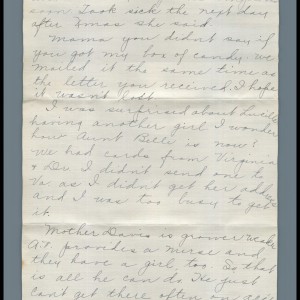 soon. Took sick the next day
after Xmas she said.
Mama you didn't say if
you got my box of candy. we
mailed it the same time as
the letter you received. I hope
it wasn't lost.
I was surprised about Lucille
having another girl. I wonder
how Aunt Belle is now?
We had cards from Virginia
+ Du. I didn't send one to
Va. as I didn't get her address
and I was too busy to get
it.
Mother Davis is grower weaker
provides a nurse and
they have a girl, too. So that
is all he can do. He just
can't get there often